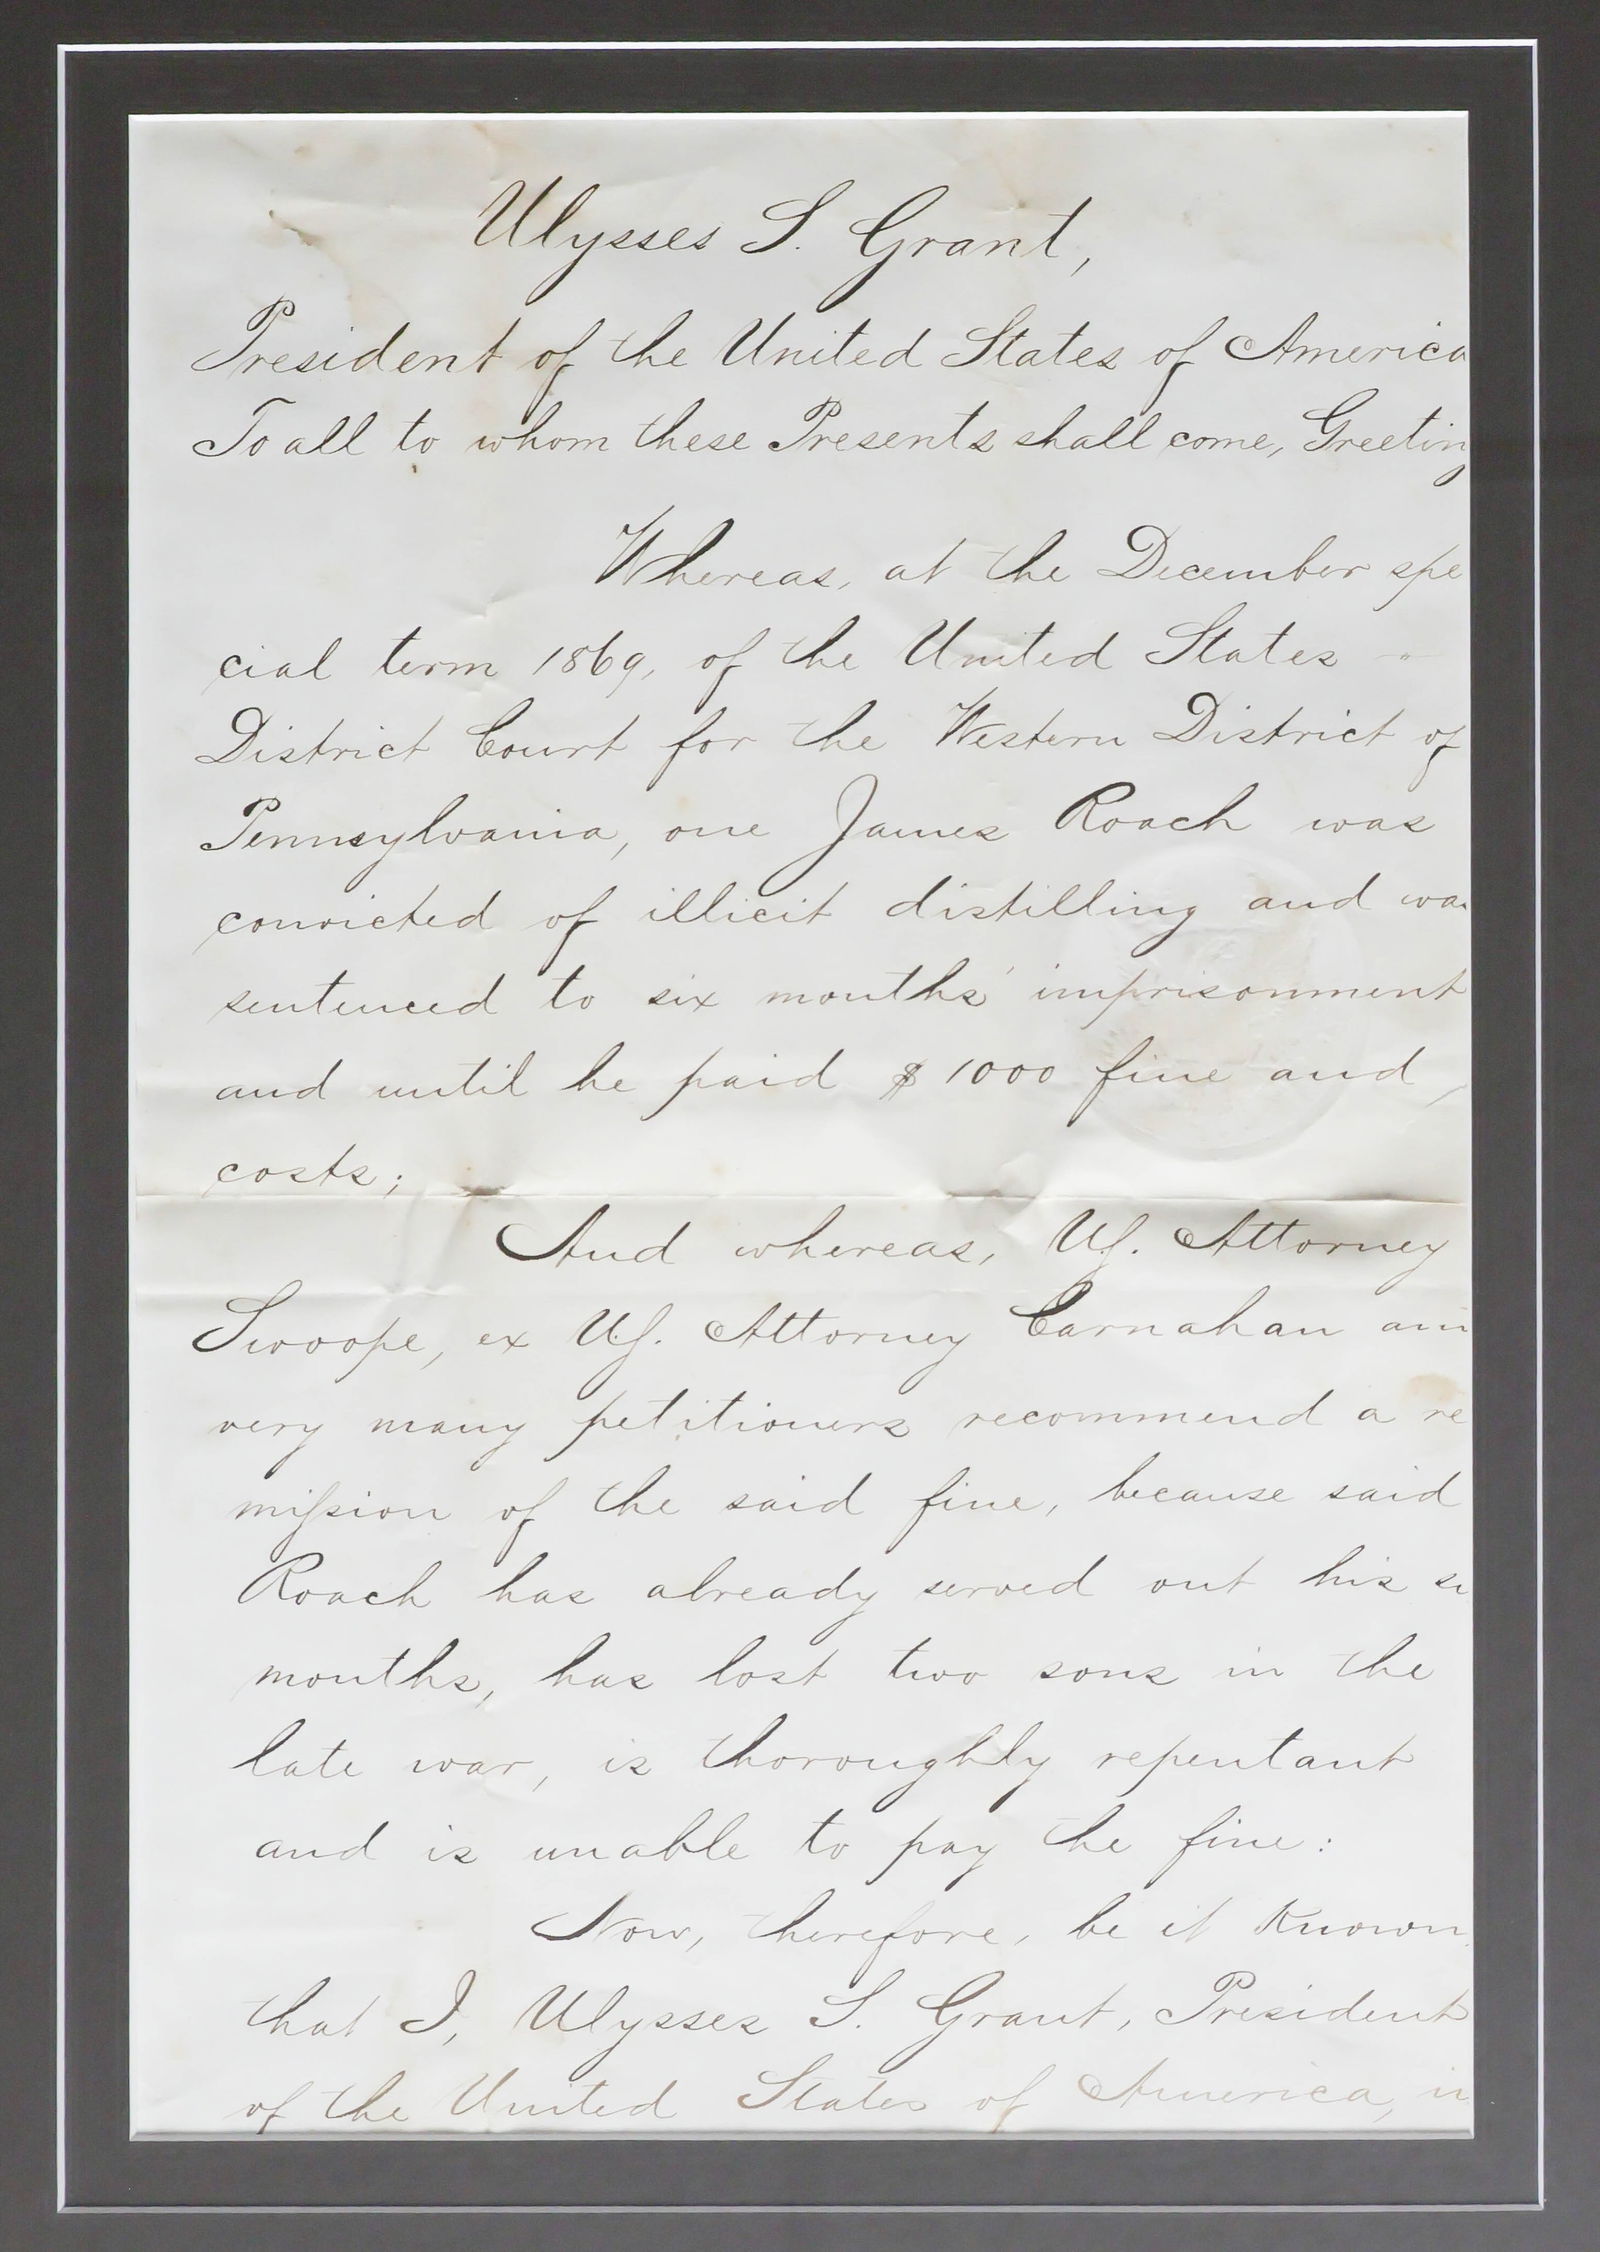 Ulysses S. Grant,
President of the United States of America
To all to whom these Presents shall come, Greeting
Whereas, at the December spe
cial term 1869, of the United States
District Court for the Western District of
Pennsylvania, one James Roach was
convicted of illicit distilling and was
sentenced to six months' imprisonment
and until he paid $1000 fine and
costs;
And whereas, U.S. Attorney
Swoope, ex U.S. Attorney Carnahan and
very many petitioners recommend a re
mission of the said fine, because said
Roach has already served out his si
months, has lost two sons in the
late war, is thoroughly repentant
and is unable to pay the fine:
Now, therefore, be it known
that I, Ulysses S. Grant, President
of the United States of America, in